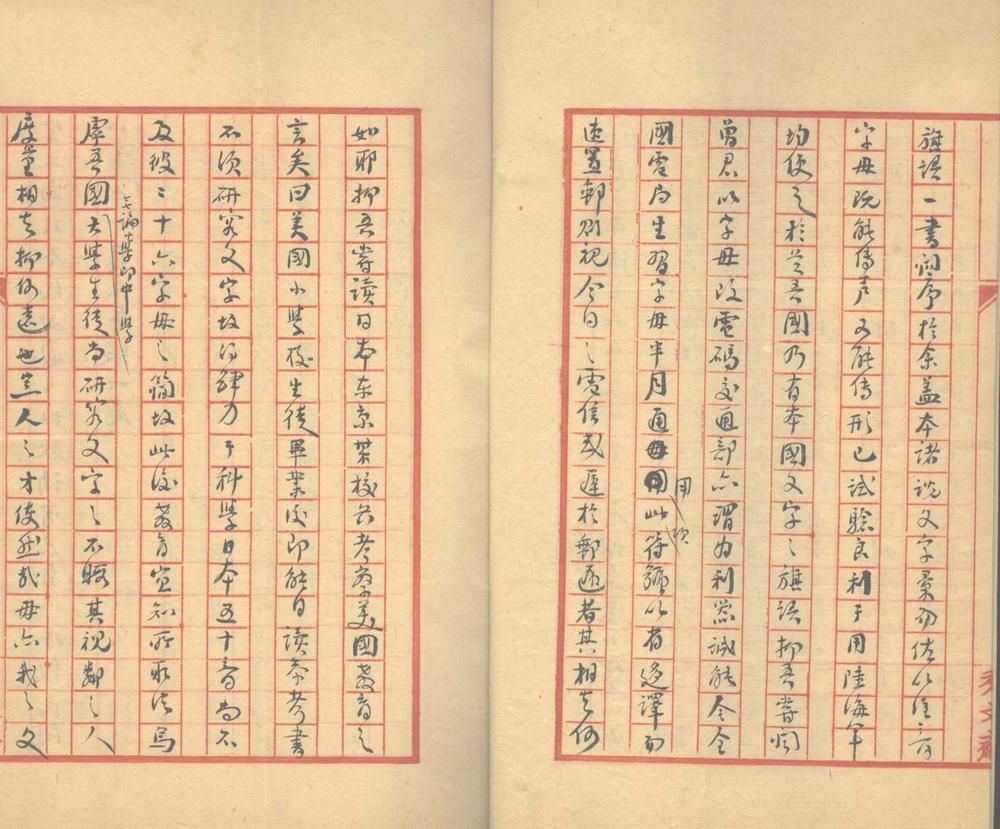 旗語一書問序於余蓋本諸說文字彙而佐以注音
字母既能傳声又能傳形已試驗良利于用陸海軍
均便之於是吾國乃有本國文字之旗語抑吾嘗聞
曾君以字母改電碼交通部亦謂为利器誠能令全
國電局生習字母半月通用此符號以省迻譯而
速置郵則視今日之電信或遲於郵遞者其相去何
如耶抑吾嘗讀日本东京某校长考察美國教育之
言矣曰美國小學校生徒畢業後即能自讀參考書
不須研究文字故得肆力于科學日本五十音尚不
及彼二十六字母之簡故此後教育宜知所取法焉
無論大學即中學
虖吾國大學生徒尚研究文字之不暇其視鄰之人
度量相去抑何遠也豈人之才使然哉毋亦我之文